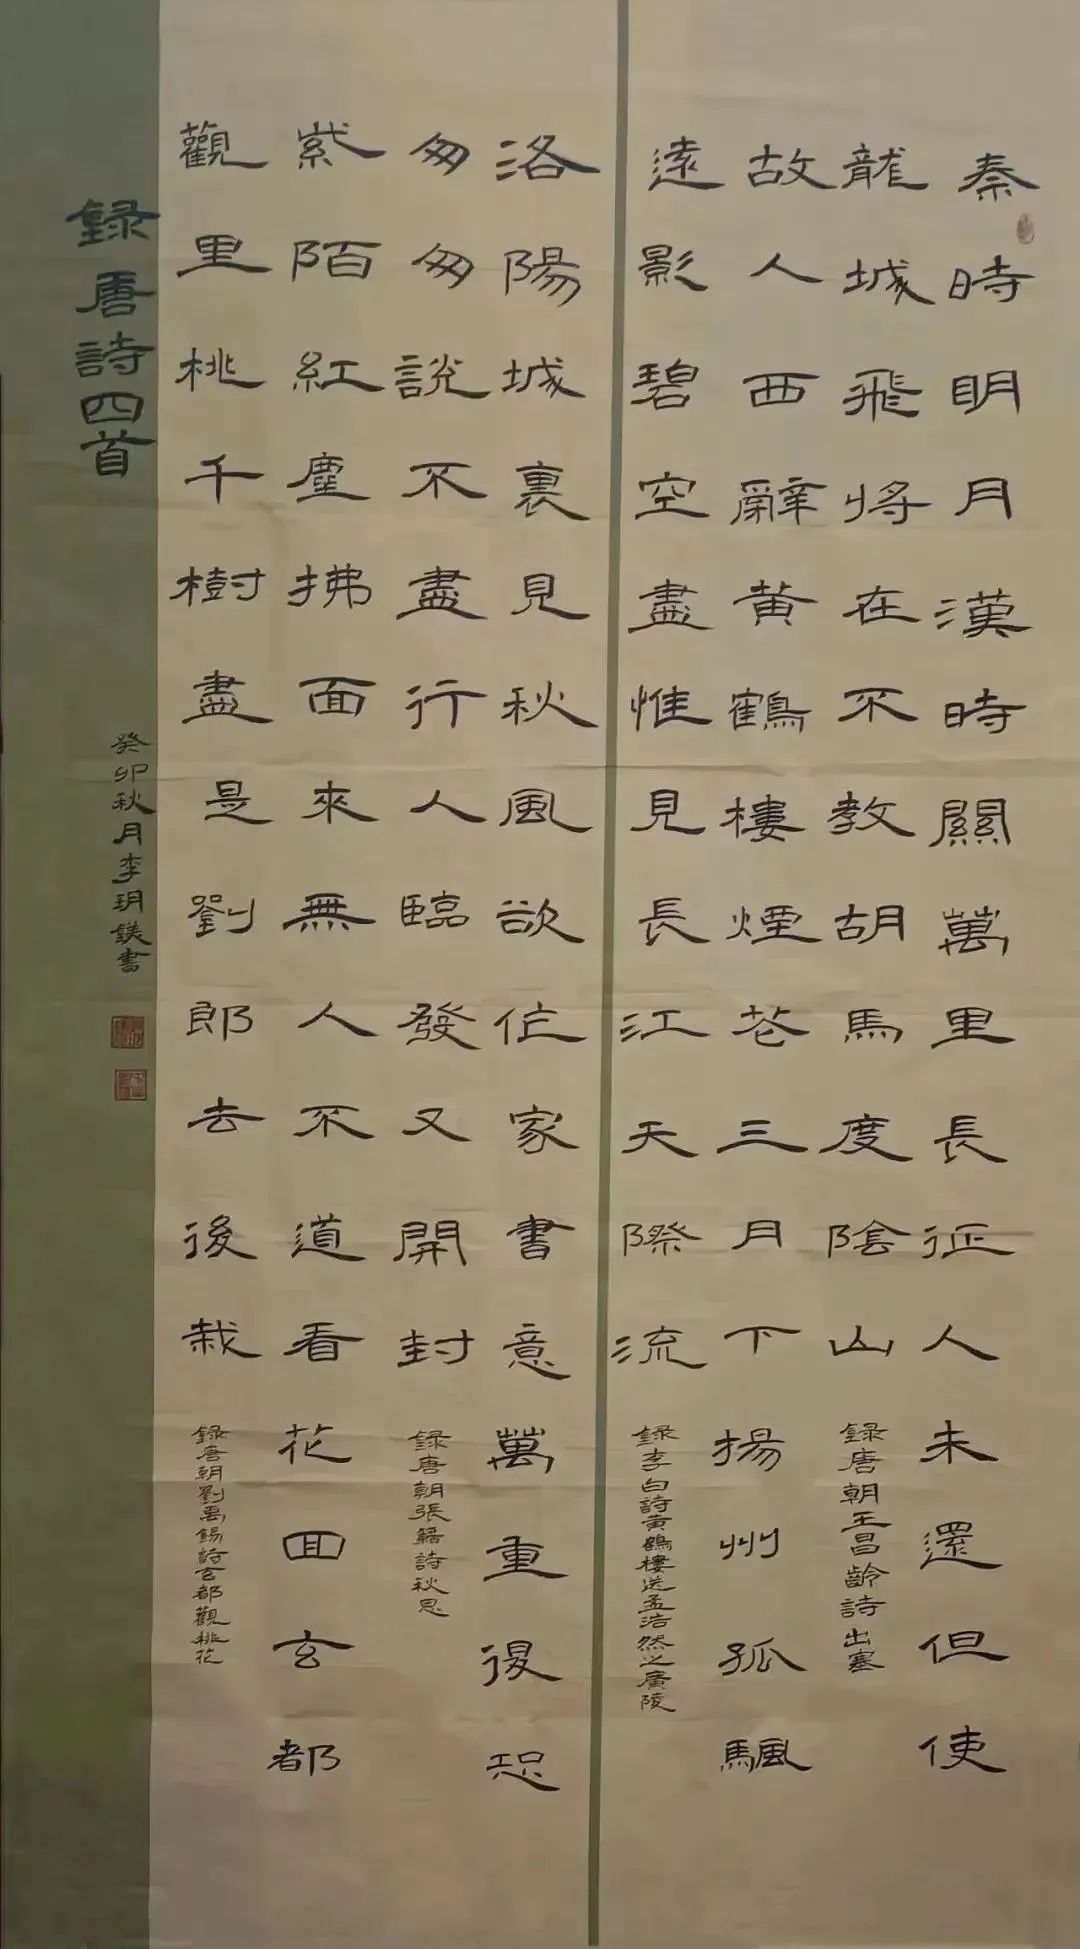 秦時明月漢時關萬里長征人未還但使
龍城飛將在不教胡馬度陰山
錄唐朝王昌齡詩出塞
故人西辭黃鶴樓煙花三月下揚州孤颿
遠影碧空盡惟見長江天際流
錄李白詩黃鶴樓送孟浩然之廣陵
洛陽城裏見秋風欲作家書意萬重復恐
匆匆說不盡行人臨發又開封
錄唐朝張籍詩秋思
紫陌紅塵拂面來無人不道看花回玄都
觀里桃千樹盡是劉郎去後栽
錄唐朝劉禹錫詩玄都觀桃花
錄唐詩四首
癸卯秋月李玥鎂書